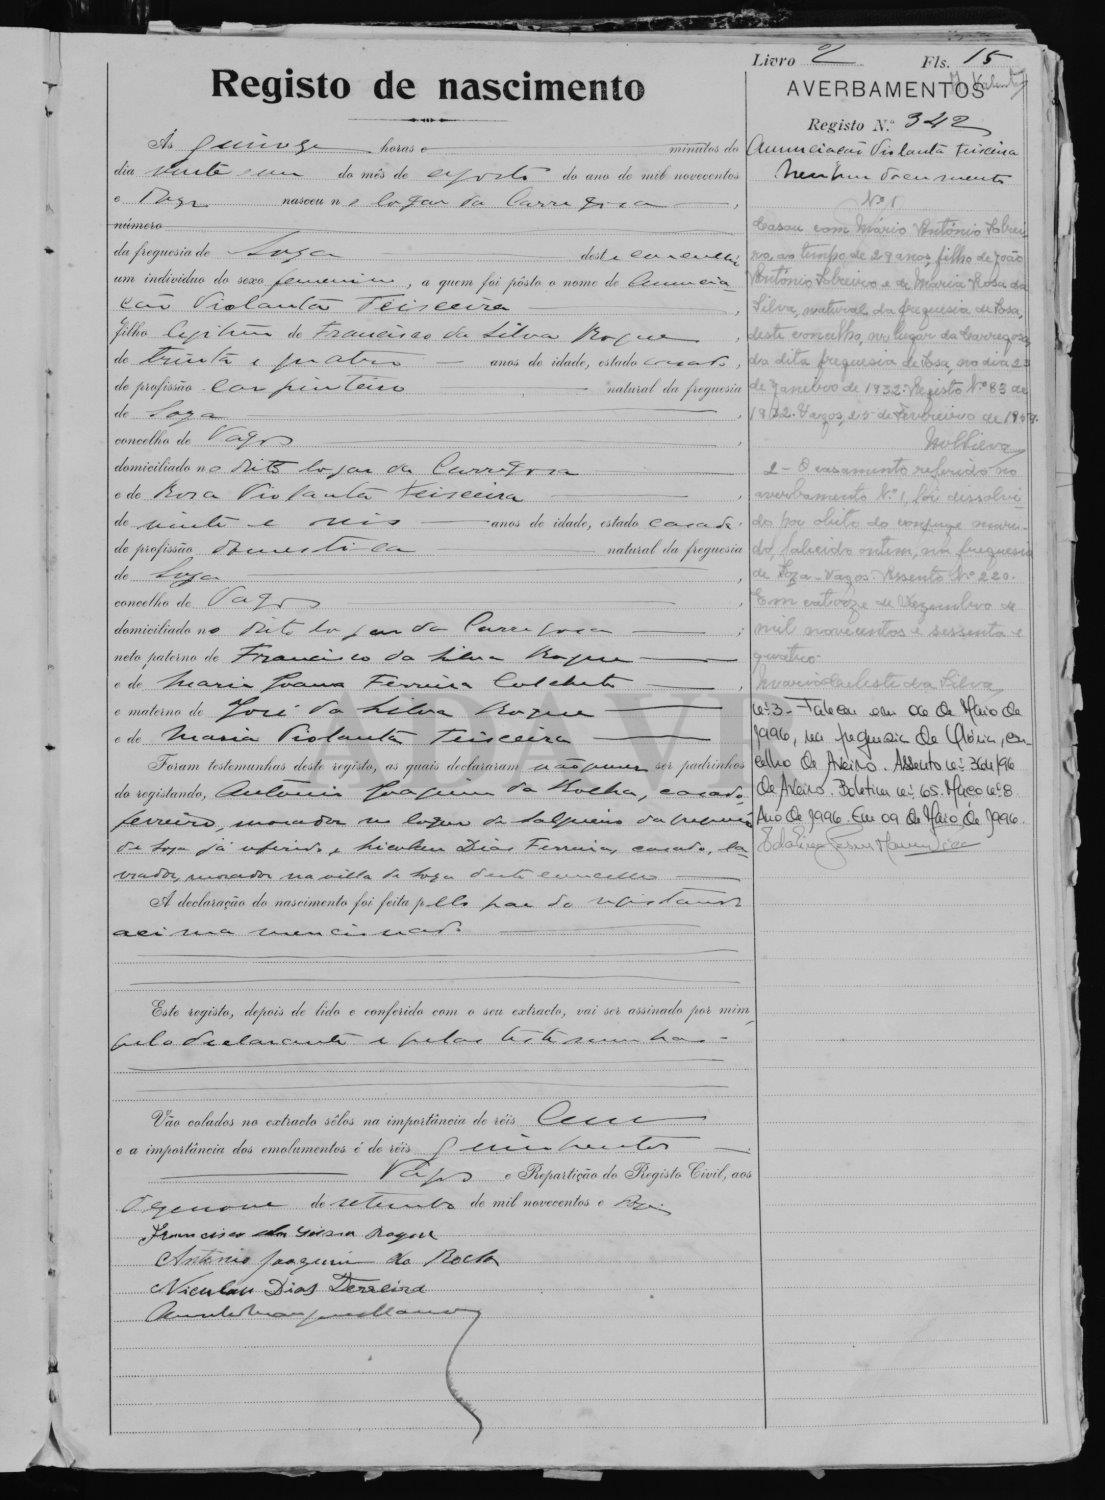 Livro 2 Fls. 15
Registo de nascimento
AVERBAMENTOS
Registo N.º 342
Anunciação Violanta Teixeira
Nenhum documento
Às quinze horas e minutos do
dia vinte e um do mês de agosto do ano de mil novecentos
e doze nasceu no logar da Carregosa
número
da freguesia de Soza deste concelho
um indivíduo do sexo feminino, a quem foi pôsto o nome de Anuncia-
ção Violanta Teixeira
filha legitima de Francisco da Silva Roque
de trinta e quatro anos de idade, estado casado,
de profissão carpinteiro natural da freguesia
de Soza
concelho de Vagos
domiciliado no dito logar da Carregosa
e de Rosa Violanta Teixeira
de vinte e seis anos de idade, estado casada
de profissão domestica natural da freguesia
de Soza
concelho de Vagos
domiciliado no dito logar da Carregosa
neto paterno de Francisco da Silva Roque
e de Maria Joana Ferreira
e materno de José da Silva Roque
e de Maria Violanta Teixeira
Foram testemunhas deste registo, as quais declararam não querer ser padrinhos
do registando, António Joaquim da Rocha, casado,
ferreiro, morador no logar de Salgueiro da freguesia
de Soza já referida, e Nicolau Dias Ferreira, casado, la-
vrador, morador na villa de Soza deste concelho
A declaração do nascimento foi feita pello pae do registando
acima mencionado
Este registo, depois de lido e conferido com o seu extracto, vai ser assinado por mim,
pelo declarante e pelas testemunhas
Vão colados no extracto sêlos na importância de réis Cem
e a importância dos emolumentos é de réis quinhentos
Vagos e Repartição do Registo Civil, aos
dezenove de setembro de mil novecentos e doze
Francisco da Silva Roque
António Joaquim da Rocha
Niculau Dias Ferreira
Nº 1
Casou com Mário António Sobrei-
ro, ao tempo de 29 anos, filho de João
António Sobreiro e de Maria Rosa da
Silva, natural da freguesia de Sosa,
deste concelho, no lugar da Carregosa,
da dita freguesia de Sosa, no dia 23
de Janeiro de 1932. Registo Nº 83 de
1932. Vagos, 25 de Fevereiro de
2 - O casamento referido no
averbamento N.º 1, foi dissolvi-
do por óbito do conjuge mari-
do, falecido ontem, na freguesia
de Soza - Vagos. Assento Nº 220.
Em catorze de Dezembro de
mil novecentos e sessenta e
quatro.
Maria Celeste da Silva
Nº 3 - Faleceu em 06 de Maio de
1996, na freguesia de Glória, con-
celho de Aveiro. Assento nº 364/96
de Aveiro. Boletim nº 65. Maço nº 8
Ano de 1996. Em 09 de Maio de 1996.
ADAVR